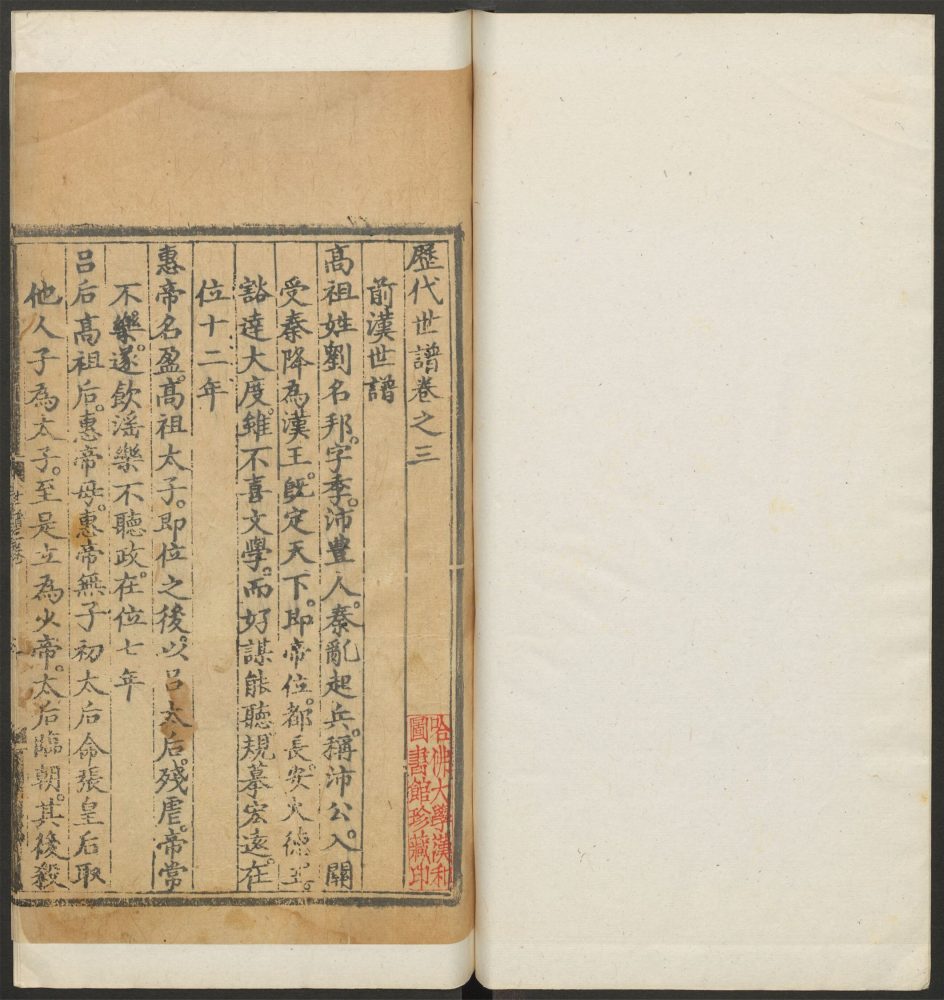 歷代世譜卷之三
前漢世譜
高祖姓劉名邦。字季。沛豊人。秦亂起兵。稱沛公。入關
受秦降為漢王。旣定天下。即帝位。都長。安火德王。
豁達大度。雖不喜文學。而好謀能聽。規摹宏遠。在
位十二年
惠帝名盈。高祖太子。即位之後。以呂太后。殘虐。帝常
不樂。遂飲滛樂不聽政。在位七年
呂后高祖后。惠帝母。惠帝無子初太后命張皇后取
他人子為太子。至是立為少帝。太后臨朝。其後殺
哈佛大學漢和
圖書館珍藏印